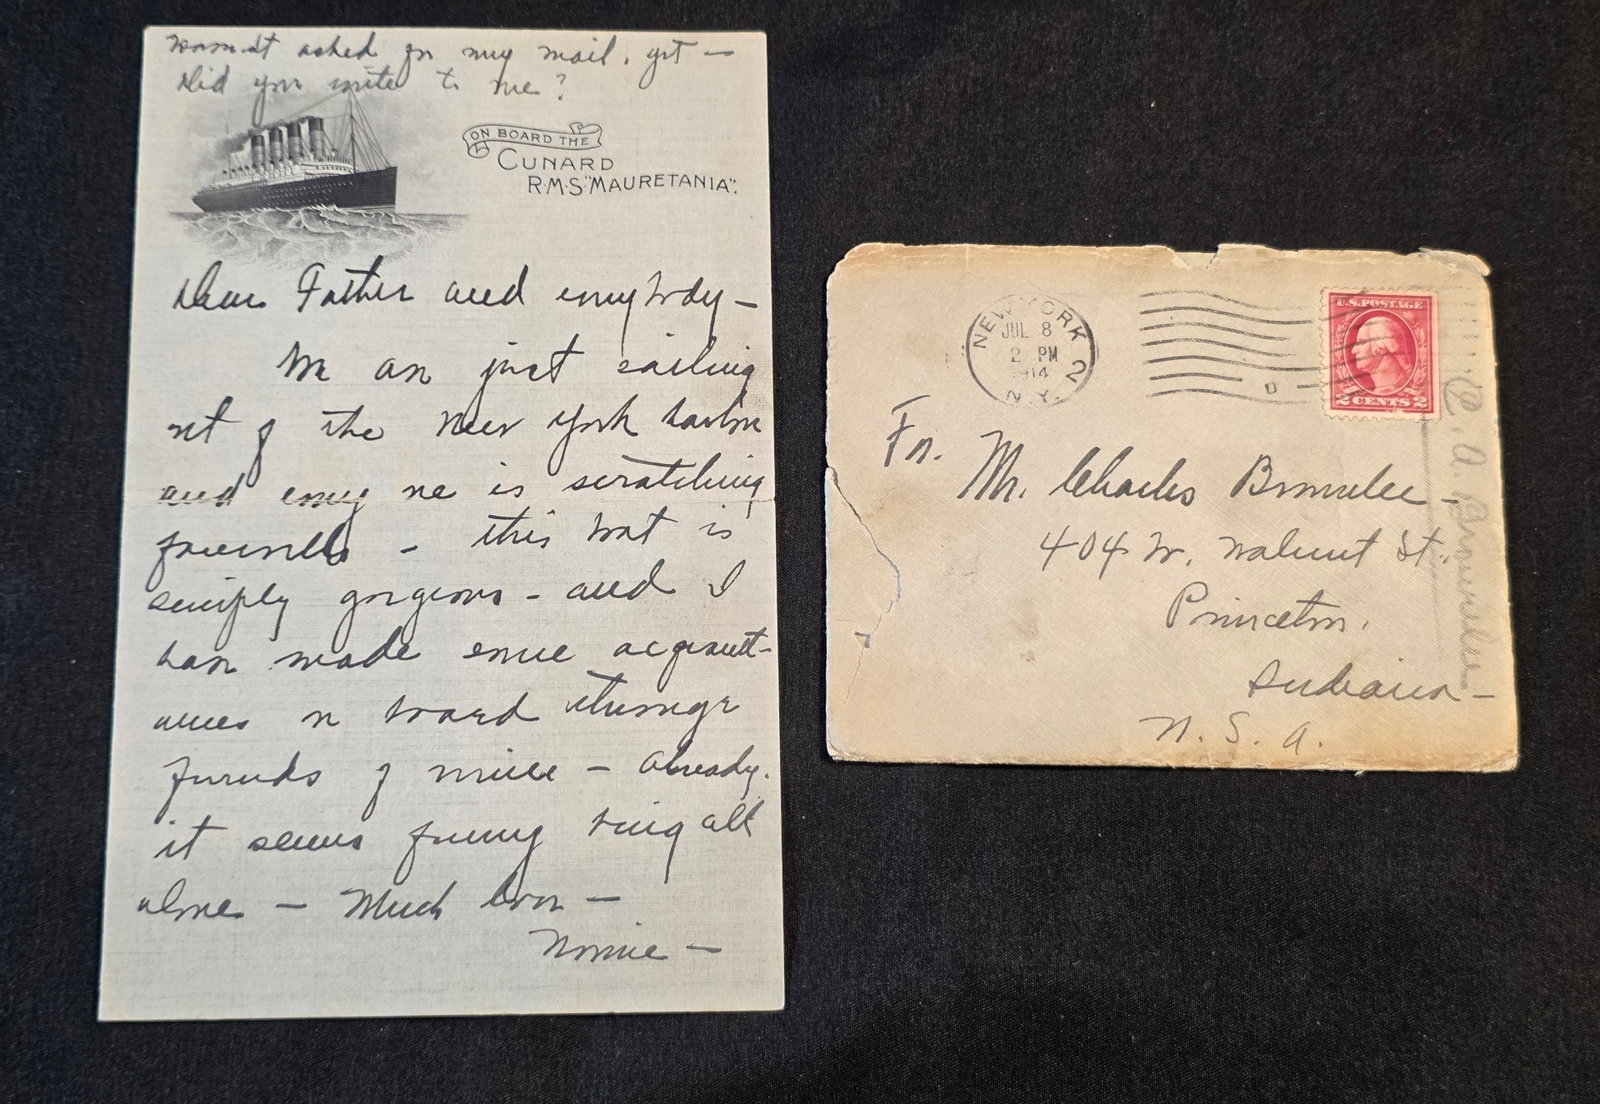 Haven't asked for my mail, yet —
Did you write to me?
ON BOARD THE
CUNARD
R·M·S "MAURETANIA".
Dear Father and everybody —
We are just sailing
out of the New York harbor
and every one is scratching
farewells — this boat is
simply gorgeous — and I
have made some acquaint-
ances on board through
friends of mine — already.
it seems funny being all
alone — Much love —
Nonie —
NEW YORK
JUL 8
2 PM
1914
N.Y.
2
D
U.S. POSTAGE
2 CENTS 2
For.
Mr. Charles Brownlee —
404 W. Walnut St.
Princeton.
Indiana —
U. S. A.
C. A. Brownlee